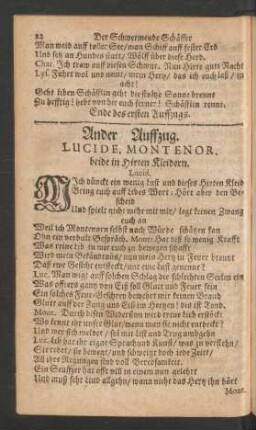 22 Der Schwermende Schäffer
Man weid auff toller See/ man Schiff auff fester Erd
Und setz an Hundes statt/ Wölff über diese Herd.
Char. Ich trau auff diesen Schwur. Nun Hirte gute Nacht
Lys. Fahrt wol und nennt/ mein Hertz/ das ich euch laß/ in
acht!
Geht liben Schäfflin geht die stoltze Sonn brennt
Zu hefftig! hebt von hir euch ferner! Schäfflin rennt.
Ende des ersten Auffzugs.
Ander Auffzug.
LUCIDE, MONTENOR,
beide in Hirten Kleidern.
Lucid.
MIch dünckt ein wenig lust und dieses Hirten Kleid
Bring euch auff libes Wort: Hört aber den Be-
scheid
Und spielt nicht mehr mit mir/ legt keinen Zwang
euch an
Weil ich Montenorn selbst nach Würde schätzen kan
Ohn ein verbult Gespräch. Mont. Hat diß so wenig Krafft
Was treues lib in mir euch zu bewegen schafft
Wird mein Bekäntnüs/ nun mein Hertz in Feuer brennt
Daß ewr Gesicht entsteckt/ nur eine lust genennt?
Luc. Man mag auff solchen Schlag die schlechten Seelen ein
Was offters gantz von Eiß soll Glutt und Feuer sein
Ein solches Feur-Gesprech bewehrt mir keinen Brand
Glutt auff der Zung und Eiß im Hertzen/ das ist Tand.
Mont. Durch disen Widerston wird treue lieb erstöckt
Wo kennt ihr unser Glutt/ wann man sie nicht entdeckt?
Und wer sich meldet/ sol mit List und Trug umbgehn
Luc. Lieb hat ihr eigne Sprach und Kunst/ was zu verstehn/
Sie redet/ sie bewegt/ und schweigt doch iede Zeitt/
All ihre Regungen sind voll Beredsamkeit.
Ein Seuffzer hat offt will in einem nun gelehrt
Und muß sehr lind allgehn/ wann nicht das Hertz ihn hört
Mont.